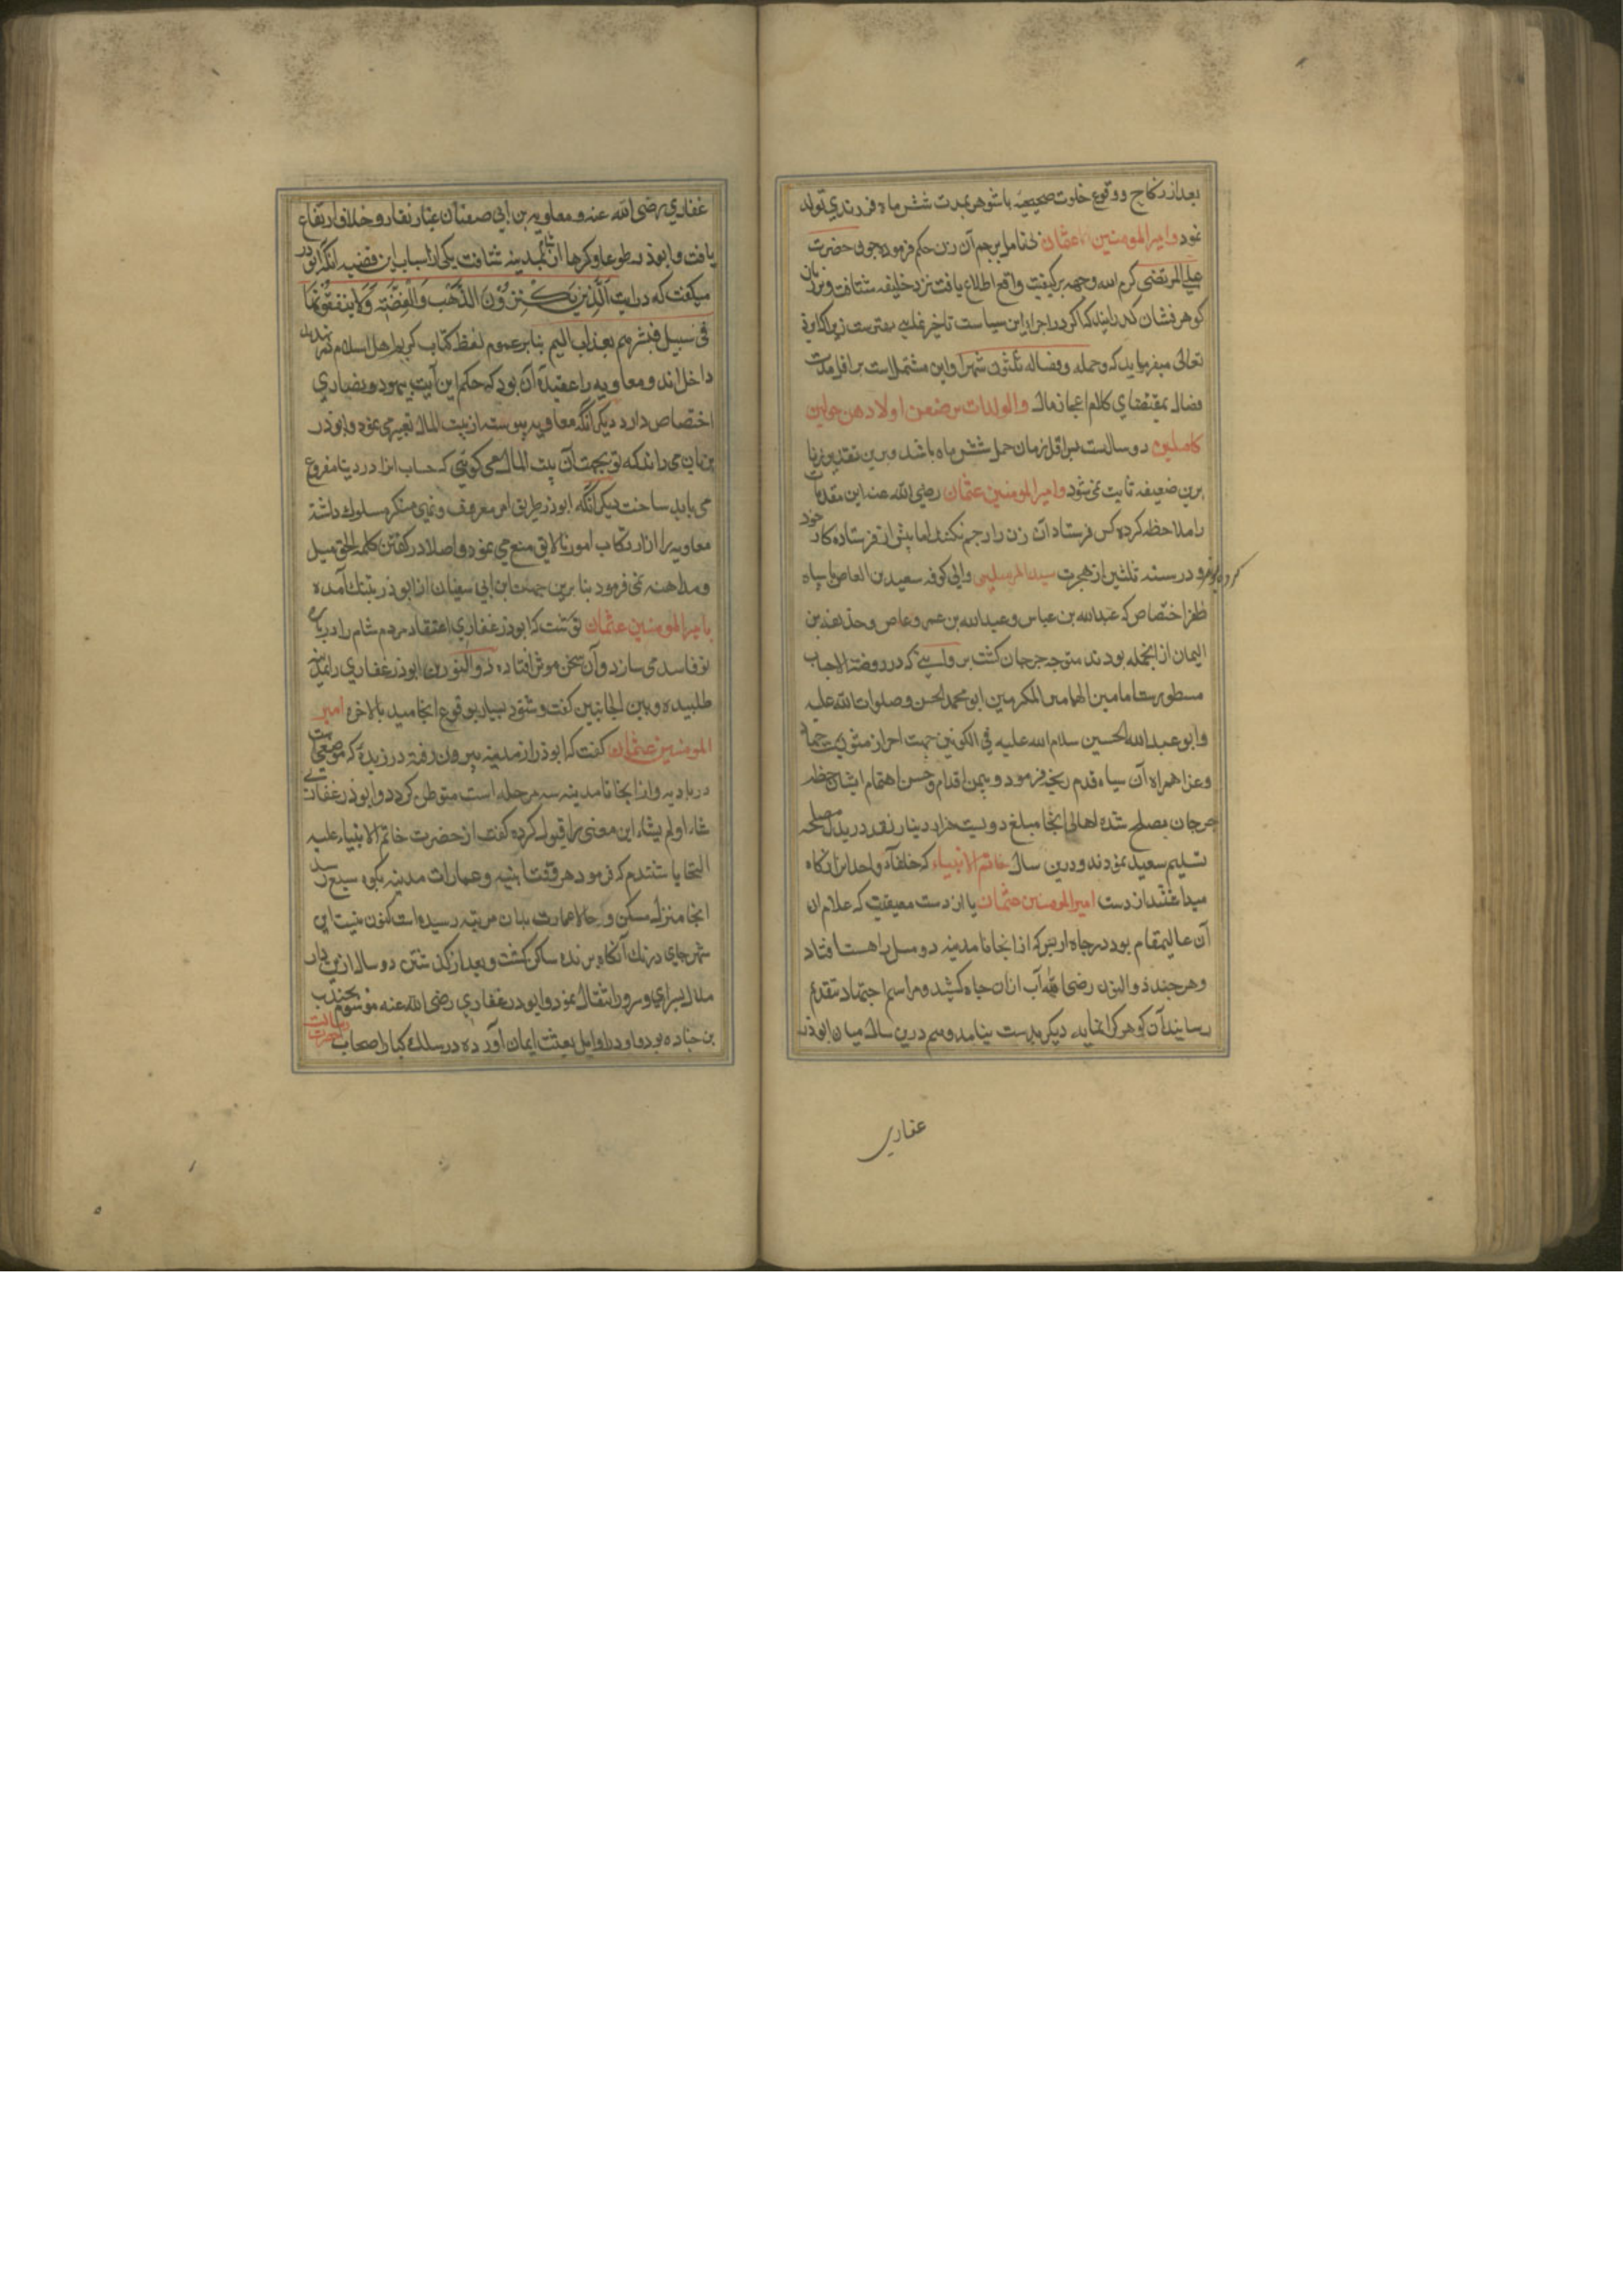 بعد از نکاح و وقوع خلوت صحیحه با شوهر بمدت شش ماه فرزندی تولد
نمود و امیرالمومنین عثمان بی تامل برجم آن زن حکم فرموده چون حضرت
علی المرتضی کرم الله وجهه بر کیفیت واقع اطلاع یافت نزد خلیفه شتافت و بزبان
کوهر فشان کذرانید که اکر در اجراء این سیاست تاخیر نمایی بهترست زیرا که ایزد
تعالی میفرماید که وحمله وفصاله ثلثون شهرا و این مشتملست بر اقل مدت
فصال بمقتضای کلام اعجاز مآل والوالدات یرضعن اولادهن حولین
کاملین دو سالست پس اقل زمان حمل شش ماه باشد و برین تقدیر زنا
برین ضعیفه ثابت نمی شود و امیرالمومنین عثمان رضی الله عنه این مقدمات
را ملاحظه کرده کس فرستاد تا آن زن را رجم نکنند اما پیش از فرستاده کار خود
کرده بودند و در سنه ثلثین از هجرت سیدالمرسلین والی کوفه سعید بن العاص با سپاه
ظفر اختصاص که عبدالله بن عباس و عبدالله بن عمرو عاص و حذیفه بن
الیمان از انجمله بودند متوجه جرجان کشت بروایتی که در روضة الاحباب
مسطورست امامین الهمامین المکرمین ابو محمد الحسن صلوات الله علیه
و ابو عبدالله الحسین سلام الله علیه فی الکونین جهت احراز مثوبت جهاد
و غزا همراه آن سپاه قدم رنجه فرمود و بیمن اقدام و حسن اهتمام ایشان خطه
جرجان بصلح شده اهالی انجا مبلغ دویست هزار دینار نقد در بدل مصالحه
تسلیم سعید نمودند و درین سال خاتم الانبیاء که خلفا واحدا
بعد از دست امیرالمومنین عثمان یا از دست معیقیب که غلام ان
آن عالیمقام بود در چاه اریس که از انجا تا مدینه دو میل راهست افتاد
و هر چند ذوالنورین رضی الله آب از ان چاه کشید و مراسم اجتهاد بتقدیم
رسانید آن کوهر کرانمایه دیکر بدست نیامد و هم درین سال میان ابوذر
غفاری
غفاری رضی الله عنه و معاویه بن ابی سفیان غبار نقار و خلاف ارتفاع
یافت و ابوذر طوعا و کرها از شام بمدینه شتافت یکی از اسباب این قضیه انکه ابوذر
میکفت که در آیت الَّذِینَ یَکْنِزُونَ الذَّهَبَ وَالْفِضَّةَ وَلَا یُنْفِقُونَهَا
فی سبیل فبشرهم بعذاب الیم بنا بر عموم لفظ کتاب کریم اهل اسلام نیز
داخل اند و معاویه را عقیده آن بود که حکم این آیت بیهود و نصاری
اختصاص دارد دیکر انکه معاویه پیوسته از بیت المال تعبیر می نمود و ابوذر
بزبان می راند که تو بجهت آن بیت المال می کویی که حساب انرا در دنیا مفروغ
می باید ساخت دیکر انکه ابوذر طریق امر معروف و نهی منکر مسلوک داشته
معاویه را از ارتکاب امور نالایق منع می نمود و اصلا در کفتن کلمه الحق میل
و مداهنه نمی فرمود بنا برین جهت ابن ابی سفیان از ابوذر بتنک آمده
با امیرالمومنین عثمان نوشت که ابوذر غفاری اعتقاد مردم شام را درباره
تو فاسد می سازد و آن سخن موثر افتاده ذوالنورین ابوذر غفاری را بمدینه
طلبیده و بین الجانبین کفت و شنود بسیار بوقوع انجامید بالاخره امیر
المومنین عثمان کفت که ابوذر از مدینه بیرون رفته در ربذه که موضعی است
در بادیه و از انجا تا مدینه سه مرحله است متوطن کردد و ابوذر غفاری
شاء اولم یشاء این معنی را قبول کرده کفت از حضرت خاتم الانبیاء علیه
التحایا شنیدم که فرمود هر وقت ابنیه و عمارات مدینه بکوه سلع رسد
انجا منزل مسکن و حالا عمارت بدان مرتبه رسیده است اکنون نیست این
شهر جای درنک آنکاه بربذه ساکن کشت و بعد از کذشتن دو سال ازین دار
ملال بسرای سرور انتقال نمود و ابوذر غفاری رضی الله عنه موسوم بجندب
بن جناده بود و او در اوایل بعثت ایمان آورده در سلک کبار اصحاب حضرت رسالت